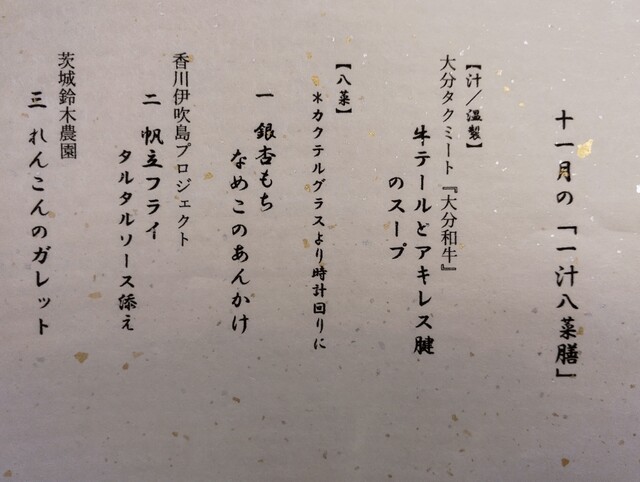 十一月の「一汁八菜膳」
【汁／温製】
大分タクミート『大分和牛』
牛テールとアキレス腱
のスープ
【八菜】
＊カクテルグラスより時計回りに
一 銀杏もち
なめこのあんかけ
香川伊吹島プロジェクト
二 帆立フライ
タルタルソース添え
茨城鈴木農園
三 れんこんのガレット